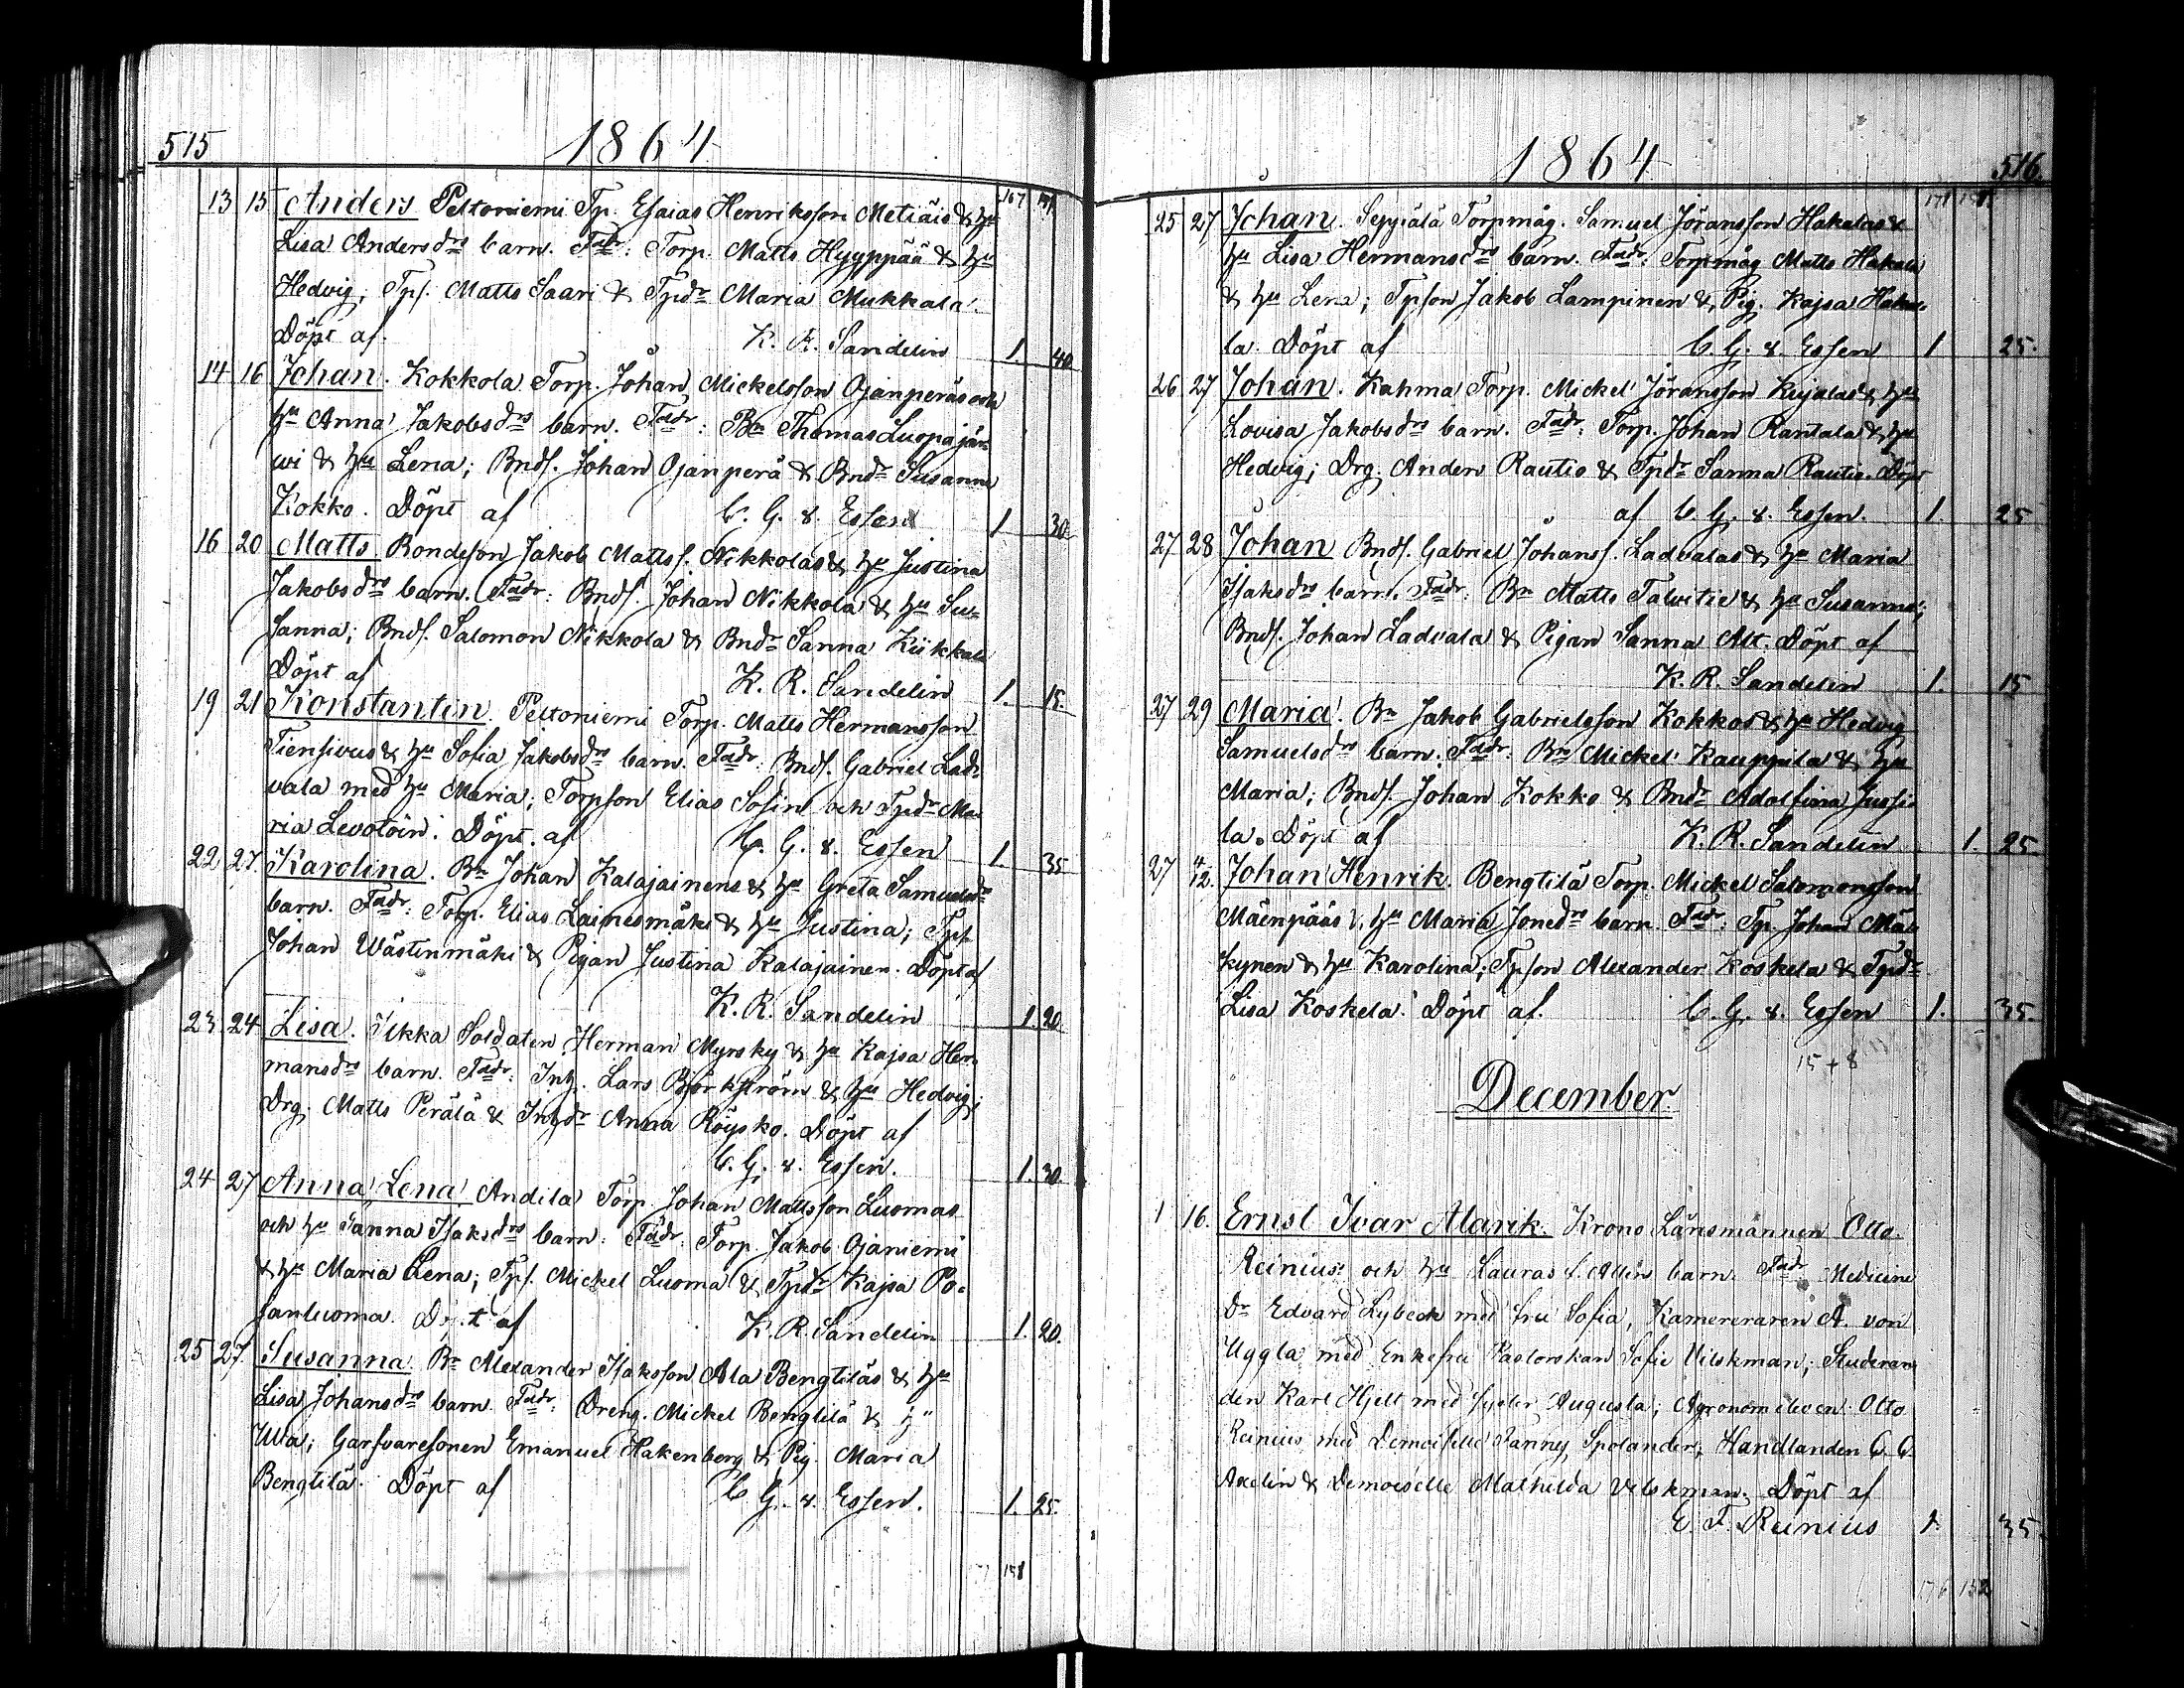 515
1864
167
13 15 Anders Peltoniemi Tp. Esaias Henriksson Metiäis & hu
Lisa Andersdrs barn. Fadr: Torp. Matts Hyyppää & hu
Hedvig; Tps. Matts Saari & Tpdr Maria Mukkala.
Döpt af K. R. Sandelin 1. 40
14 16 Johan. Kokkola Torp. Johan Mickelsson Ojanperäs och
hu Anna Jakobsdrs barn. Fadr: Bn Thomas Luopajär-
wi & hu Lena; Bnds. Johan Ojanperä & Bndr Susanna
Kokko. Döpt af C. G. v. Essen 1 30
16 20 Matts Bondeson Jakob Mattss. Nikkolas & hu Justina
Jakobsdrs barn. Fadr: Bnds. Johan Nikkola & hu Su-
sanna; Bnds. Salomon Nikkola & Bndr Sanna Kükkala
Döpt af K. R. Sandelin 1. 15.
19 21 Konstantin. Peltoniemi Torp. Matts Hermansson
Tiensivus & hu Sofia Jakobsdrs barn. Fadr: Bnds. Gabriel Lad-
vala med hu Maria; Torpson Elias Sofin och Tpdr Ma-
ria Levotoin. Döpt af C. G. v. Essen 1. 35
22 27. Karolina. Bn Johan Kalajainens & hu Greta Samuelsdrs
barn. Fadr: Torp. Elias Lainesmäki & hu Justina; Tps.
Johan Wästinmäki & Pigan Justina Kalajainen. Döpt af
K. R. Sandelin 1. 20
23. 24 Lisa. Ikka Soldaten Herman Myrsky & hu Kajsa Her-
mansdrs barn. Fadr: Inh. Lars Björkström & hu Hedvig;
Drg. Matts Perälä & Inhdr Anna Röysko. Döpt af
C. G. v. Essen. 1. 30.
24 27 Anna Lena Andila Torp Johan Mattsson Luomas
och hu Sanna Isaksdrs barn. Fadr: Torp Jakob Ojaniemi
& hu Maria Lena; Tps. Mickel Luoma & Tpdr Kajsa Po-
janluoma. Döpt af K. R. Sandelin 1. 20.
25 27. Susanna. Bn Alexander Isaksson Ala Bengtiläs & hu
Lisa Johansdrs barn. Fadr: Dreng. Mickel Bengtilä & h"
Ulla; Garfvaresonen Emanuel Hakenberg & Pig. Maria
Bengtilä. Döpt af C G. v. Essen. 1. 25.
151
1864
516.
171 151
25 27 Johan. Seppälä Torpmåg. Samuel Jöransson Hakalas &
hu Lisa Hermansdrs barn. Fadr: Torpmåg Matts Hakala
& hu Lena; Tpson Jakob Lampinen & Pig. Kajsa Haka-
la. Döpt af C. G. v. Essen 1 25.
26 27 Johan. Kahma Torp. Mickel Jöransson Kujalas & hu
Lovisa Jakobsdrs barn. Fadr: Torp. Johan Rantala & hu
Hedvig; Drg. Anders Rautio & Tpdr Sanna Rautio. Döpt
af C. G. v. Essen. 1. 25
27 28 Johan Bnds. Gabriel Johanss. Ladvalas & hu Maria
Isaksdrs barn. Fadr: Bn Matts Talvitie & hu Susanna;
Bnds. Johan Ladvala & Pigan Sanna Alt. Döpt af
K. R. Sandelin 1. 15
27 29 Maria. Bn Jakob Gabrielsson Kokkos & hu Hedvig
Samuelsdrs barn. Fadr: Bn Mickel Kauppila & hu
Maria; Bnds. Johan Kokko & Bndr Adolfina Jussi-
la. Döpt af K. R. Sandelin 1. 25.
27 4/12. Johan Henrik. Bengtilä Torp. Mickel Salomonsson
Mäenpääs & hu Maria Jonedrs barn. Fadr: Tp. Johan Mä-
kynen & hu Karolina; Tpson Alexander Koskela & Tpdr
Lisa Koskela. Döpt af. C. G. v. Essen 1. 35.
15 + 8
December
1 16. Ernst Ivar Alarik. Krono Länsmannen Otto
Reinius och hu Lauras f. Allén barn. Fadr Medicine
Dr Edvard Lybeck med fru Sofia, Kamereraren A. von
Uggla med Enkefru Pastorskan Sofie Wilskman; Studeran-
den Karl Hjelt med syster Augusta; Agronom eleven Otto
Reinius med Demoiselle Fanny Spolander; Handlanden C. C.
Axelin & Demoiselle Mathilda Vilskman. Döpt af
E. F. Reinius 1. 35.
176 152